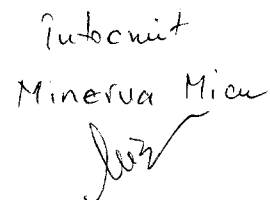 Întocmit
Minerva Micu